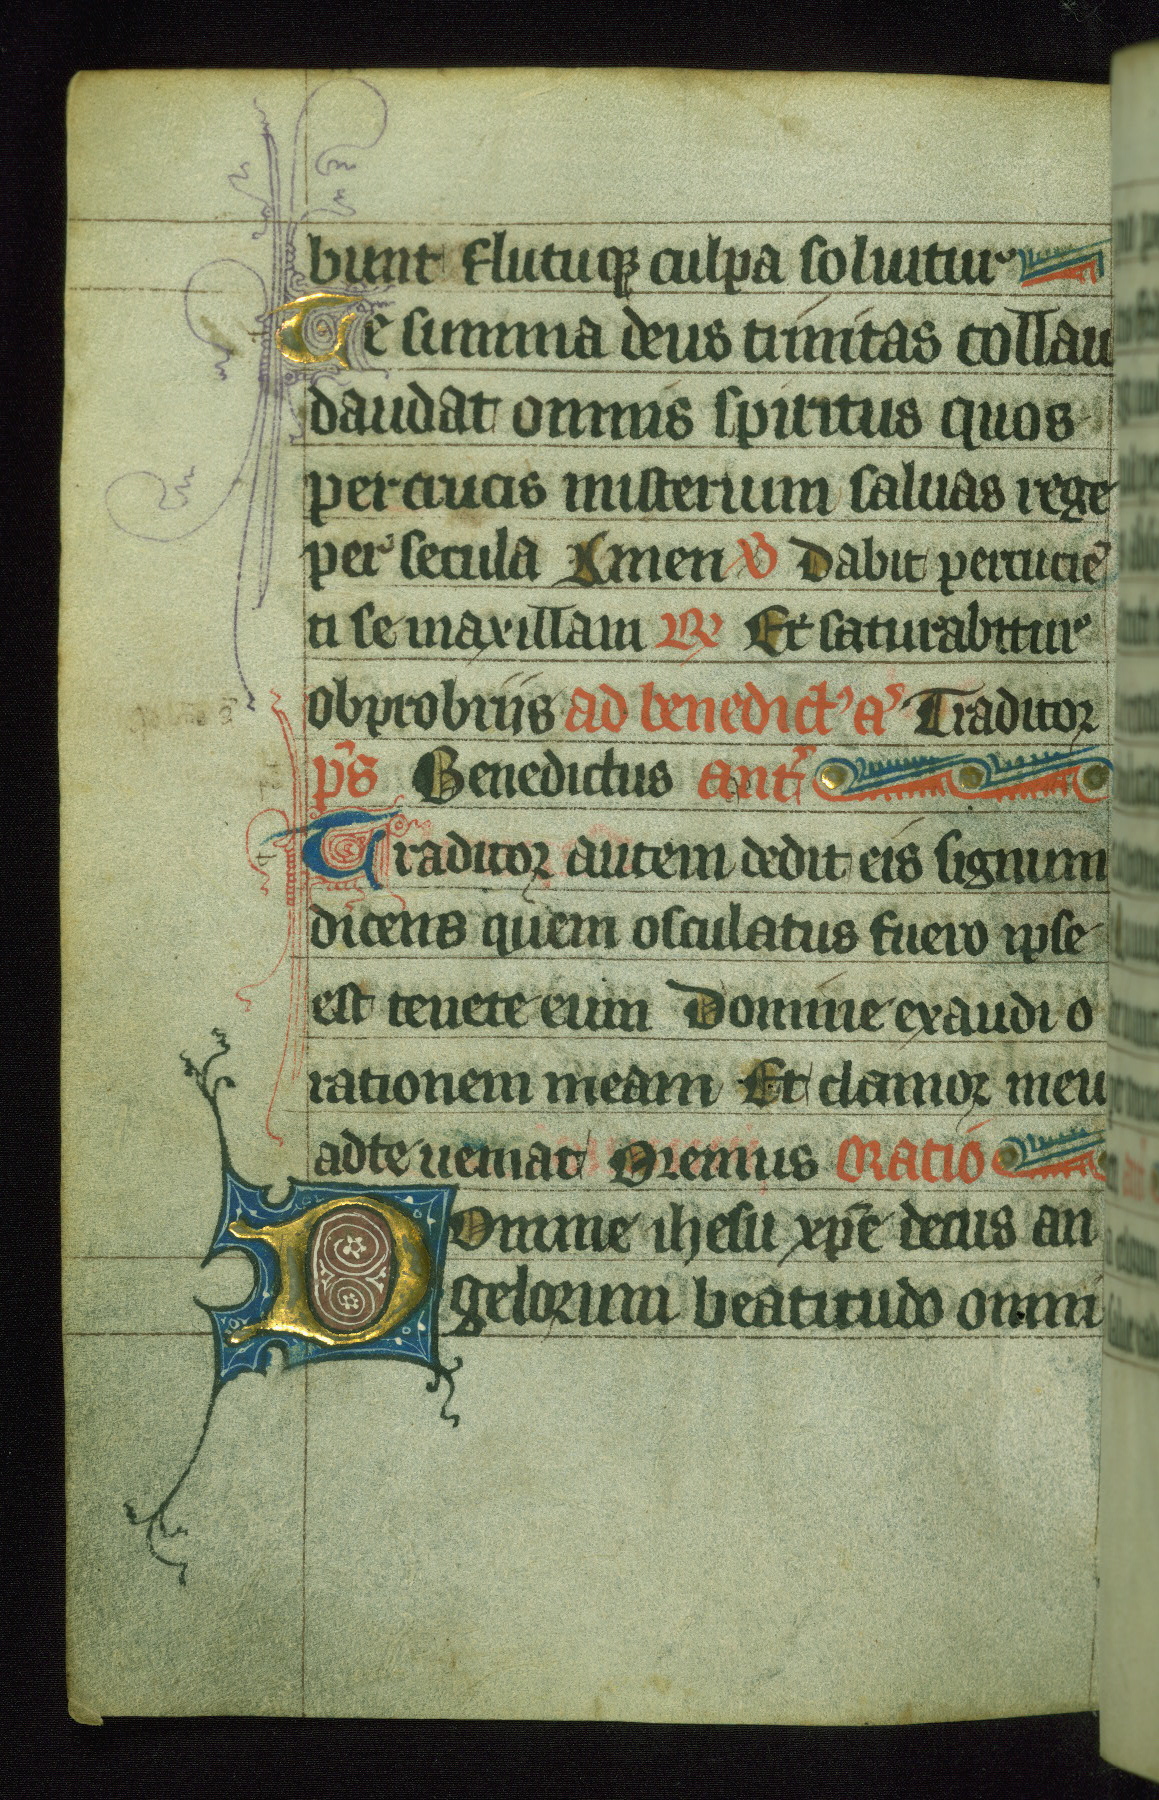 bunt flutuq culpa soluitur
Te summa deus trinitas collau
daudat omnis spiritus quos
per crucis misterium saluas rege
per secula Amen V Dabit percucie
ti se maxillam R Et saturabitur
obprobriis ad benedict' a' Traditor
p̄s Benedictus ant'
Traditor autem dedit eis signum
dicens quem osculatus fuero ipse
est tenete eum Domine exaudi o
rationem meam Et clamor meu
ad te ueniat Oremus Oratio
Domine ihesu xp̄e decus an
gelorum beatitudo omni